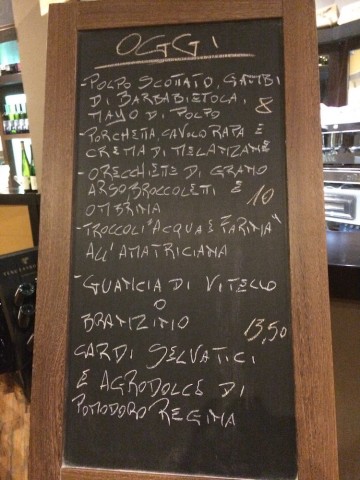 OGGI
-POLPO SCOTTATO, GAMBI
DI BARBABIETOLA,
MAYO DI POLPO 8
-PORCHETTA, CAVOLO RAPA E
CREMA DI MELANZANE
-ORECCHIETTE DI GRANO
ARSO, BROCCOLETTI E
OMBRINA 10
-TROCCOLI "ACQUA E FARINA"
ALL'AMATRICIANA
-GUANCIA DI VITELLO
O
BRANZINO 13,50
CARDI SELVATICI
E AGRODOLCE DI
POMODORO REGINA